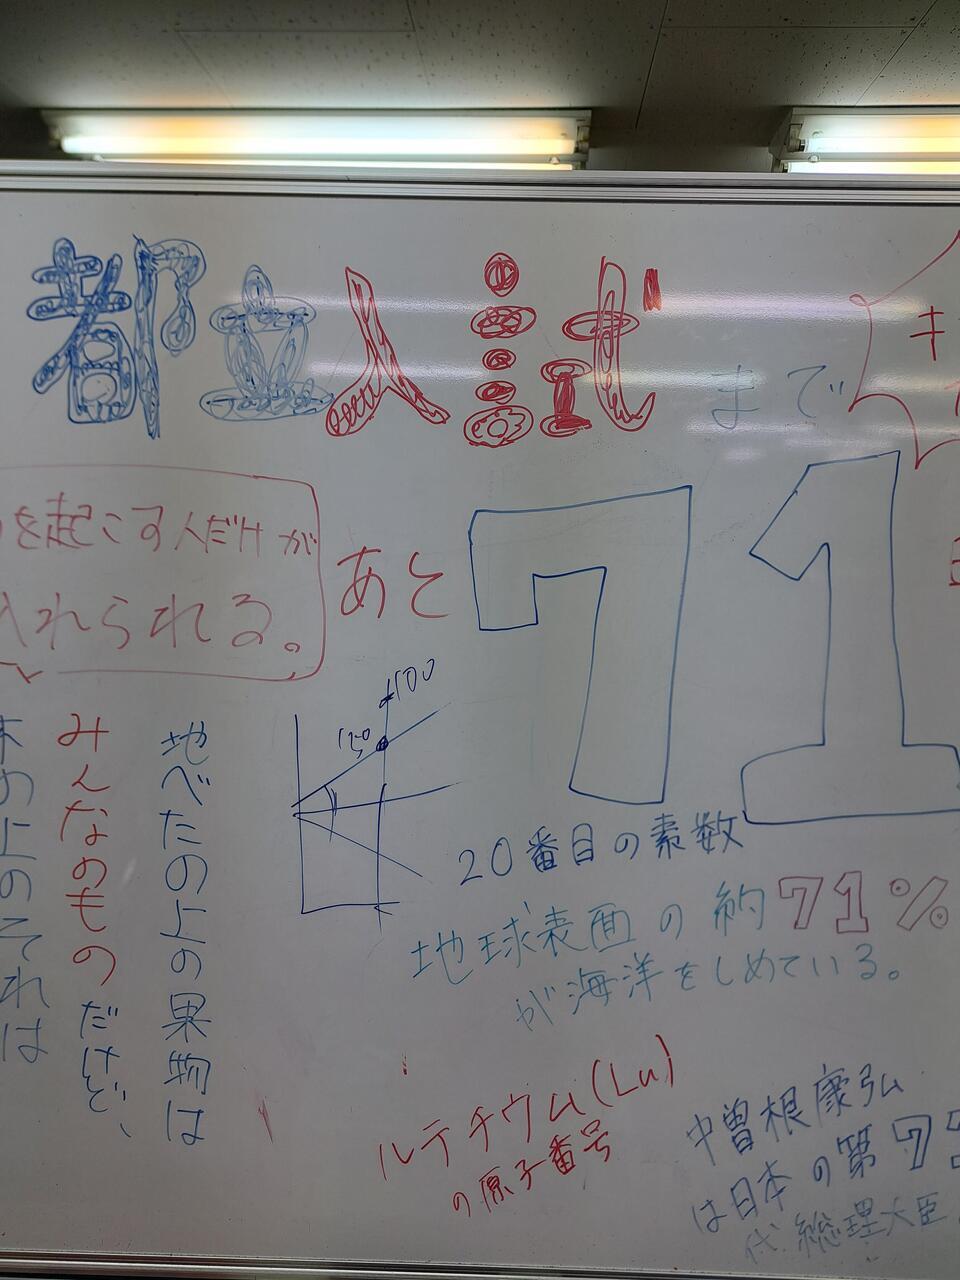 都立入試まで
キ
を起こす人だけが
入れられる。
あと
71
日
地べたの上の果物は
みんなのものだけど、
木の上のそれは
20番目の素数
地球表面の約71%
が海洋をしめている。
ルテチウム(Lu)
の原子番号
中曽根康弘
は日本の第71
代総理大臣